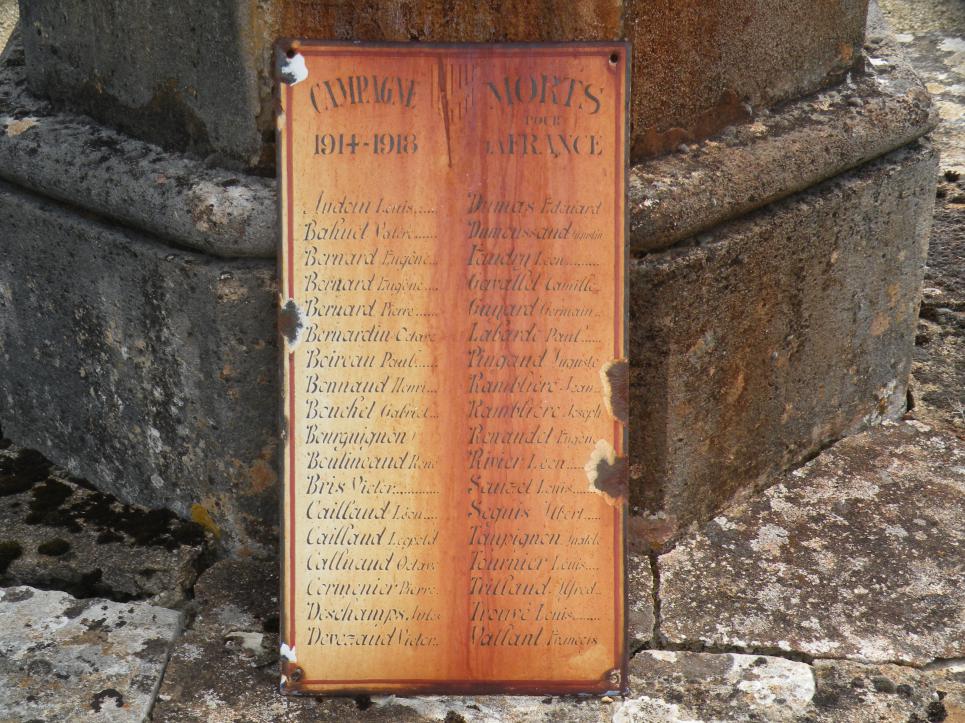 CAMPAGNE
1914-1918
Audoin Louis.....
Bahuet Valère......
Bernard Eugène...
Bernard Eugène....
Bernard Pierre......
Bernardin Octave
Boireau Paul......
Bonnaud Henri...
Bouchet Gabriel..
Bourguignon
Boulineaud René
Bris Victor...........
Caillaud Léon....
Caillaud Léopold
Calluaud Octave
Cormenier Pierre.
Deschamps Jules
Devezaud Victor..
MORTS
POUR
LA FRANCE
Dumas Edouard
Dumoussaud
Faudry Léon.........
Gavallet Camille..
Guyard Germain..
Labarde Paul......
Pingaud Auguste
Ramblière Jean..
Ramblière Joseph
Renaudet Eugène
Rivier Léon.......
Sauzet Louis......
Seguis Albert.....
Tampignon
Tournier Louis....
Trillaud Alfred..
Trouvé Louis........
Vallant François